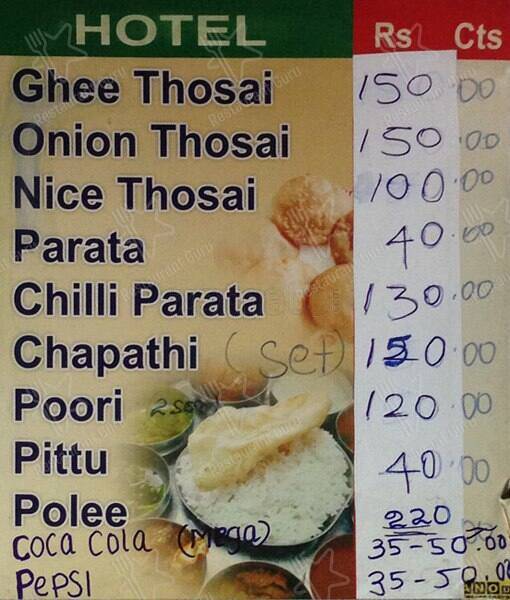 HOTEL Rs Cts
Ghee Thosai 150 .00
Onion Thosai 150 .00
Nice Thosai 100 .00
Parata 40 .00
Chilli Parata 130 .00
Chapathi (set) 150 .00
Poori 120 .00
Pittu 40 .00
Polee 220
COCA COLA (Mega) 35-50.00
PePSI 35-50.00